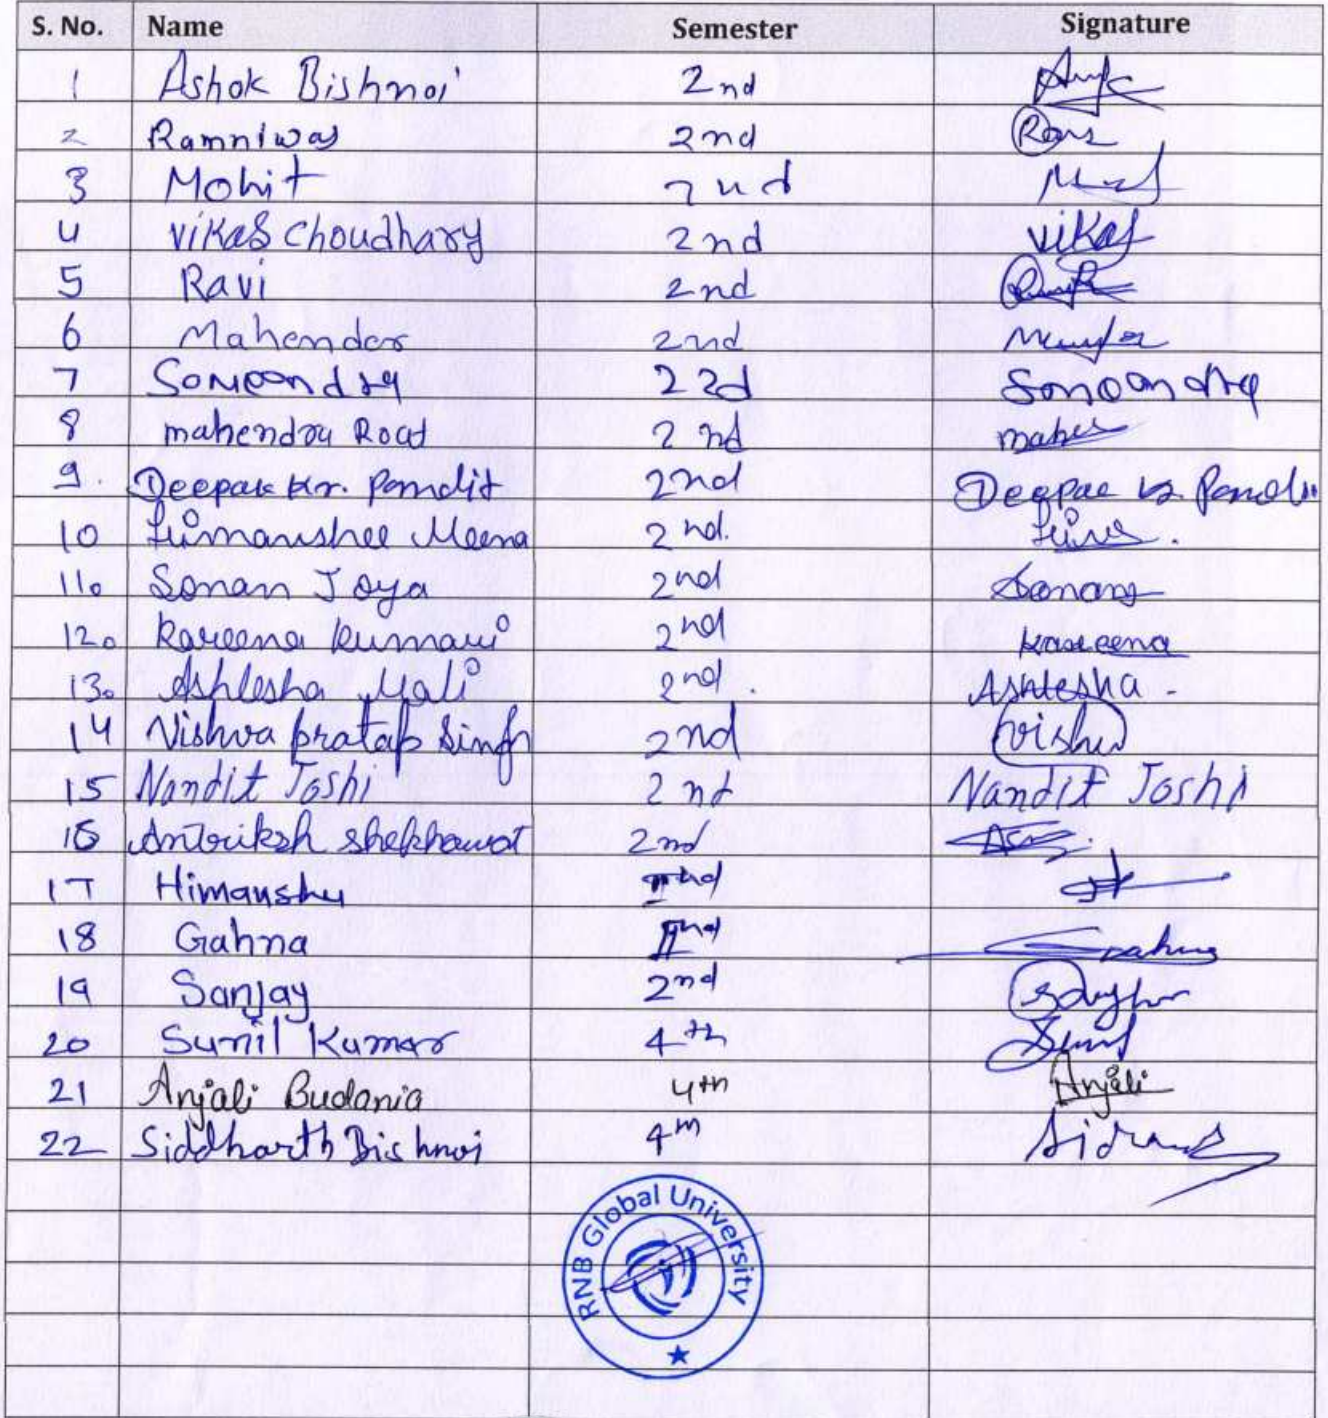 S. No. Name Semester Signature
1 Ashok Bishnoi 2nd
2 Ramniwas 2nd
3 Mohit 2nd
4 vikas choudhary 2nd vikas
5 Ravi 2nd
6 Mahendar 2nd
7 2nd
8 mahendra Road 2nd
9. Deepak Kr. Pandit 2nd Deepak Kr. Pandit
10 Himanshee Meena 2nd.
11. Sonam Joya 2nd
12. Kareena Kumari 2nd Kareena
13. Ashlesha Mali 2nd. Ashlesha -
14 Vishva pratap Singh 2nd
15 Nandit Joshi 2nd Nandit Joshi
16 Antriksh shekhawat 2nd
17 Himanshu IInd
18 Gahna IInd
19 Sanjay 2nd
20 Sunil Kumar 4th
21 Anjali Budania 4th Anjali
22 Siddharth Bishnoi 4th
RNB Global University